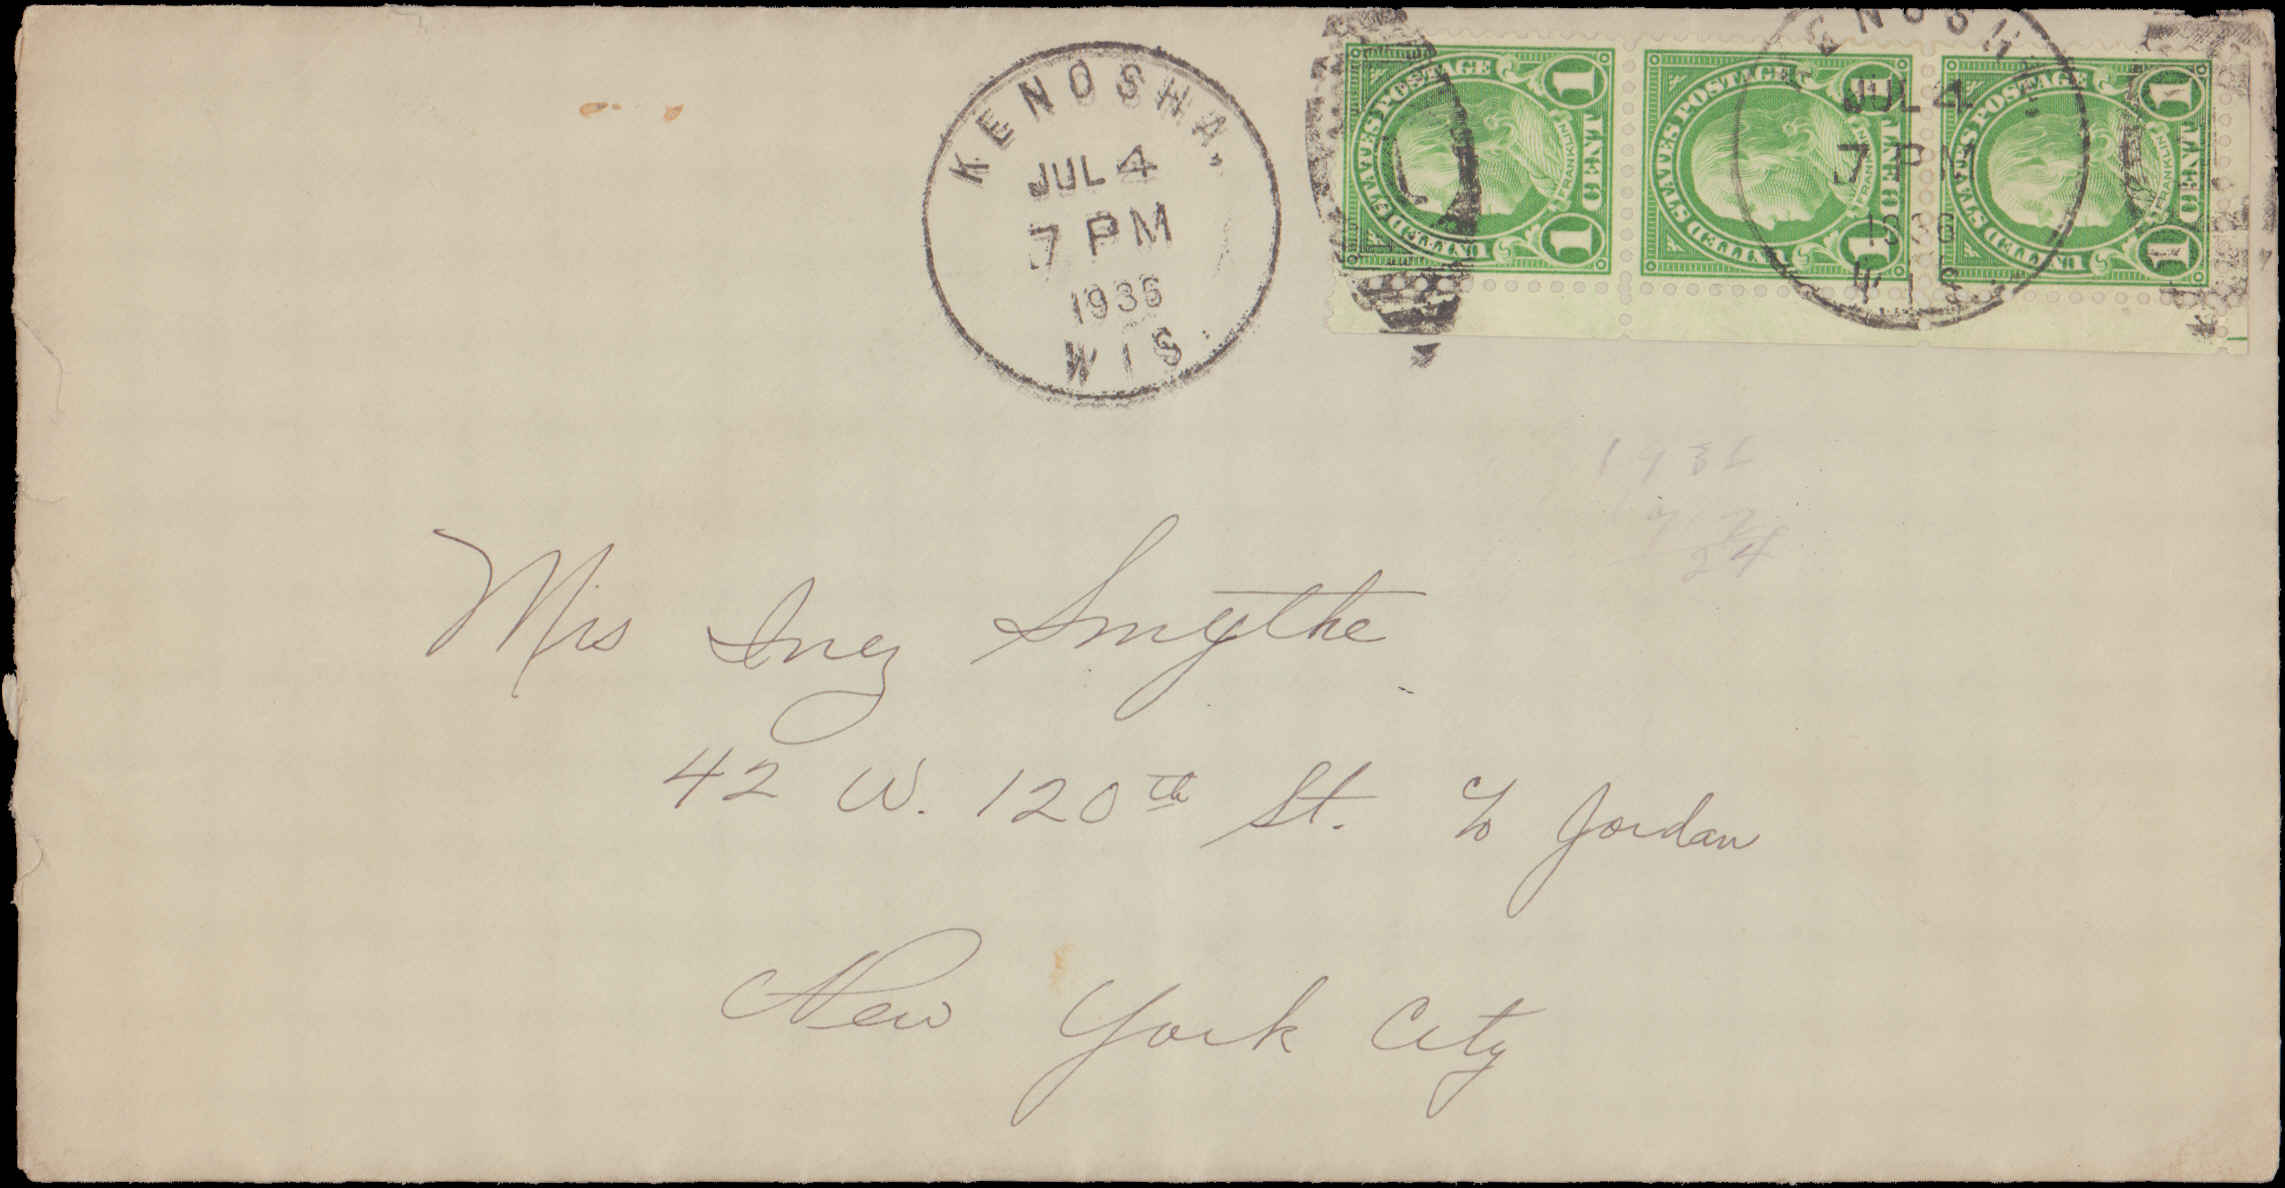 KENOSHA,
JUL 4
7 PM
1936
WIS.
UNITED STATES POSTAGE
FRANKLIN
1 CENT 1
UNITED STATES POSTAGE
FRANKLIN
1 CENT 1
UNITED STATES POSTAGE
FRANKLIN
1 CENT 1
KENOSHA,
JUL 4
7 PM
1936
WIS.
1936
24
Mrs Inez Smythe
42 W. 120th St. c/o Jordan
New York City